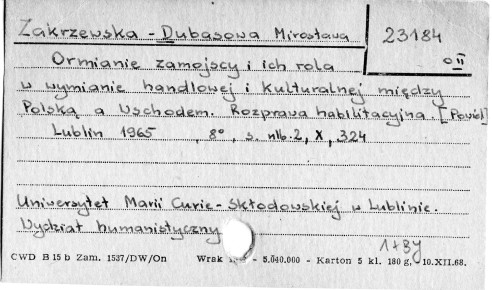 Zakrzewska - Dubasowa Mirosława
23184
o II
Ormianie zamojscy i ich rola
w wymianie handlowej i kulturalnej między
Polską a Wschodem. Rozprawa habilitacyjna. [Powiel.]
Lublin 1965 , 8°, s. nlb. 2, X, 324
Uniwersytet Marii Curie-Skłodowskiej w Lublinie.
Wydział humanistyczny
1+3y
CWD B 15 b Zam. 1537/DW/On Wrak - 5.040.000 - Karton 5 kl. 180 g, 10.XII.68.